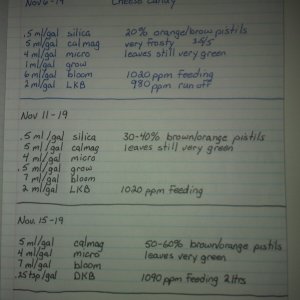 Nov 6-19 Cheese Candy
.5 ml/gal silica 20% orange/brow pistils
5 ml/gal calmag very frosty
4 ml/gal micro leaves still very green
1 ml/gal grow
6 ml/gal bloom 1020 ppm feeding
2 ml/gal LKB 980 ppm run off
Nov 11-19
.5 ml/gal silica 30-40% brown/orange pistils
5 ml/gal calmag leaves still very green
4 ml/gal micro
.5 ml/gal grow
7 ml/gal bloom
2 ml/gal LKB 1020 ppm feeding
Nov. 15-19
5 ml/gal calmag 50-60% brown/orange pistils
4 ml/gal micro leaves very green
7 ml/gal bloom
.25tsp/gal DKB 1090 ppm feeding 2ltrs